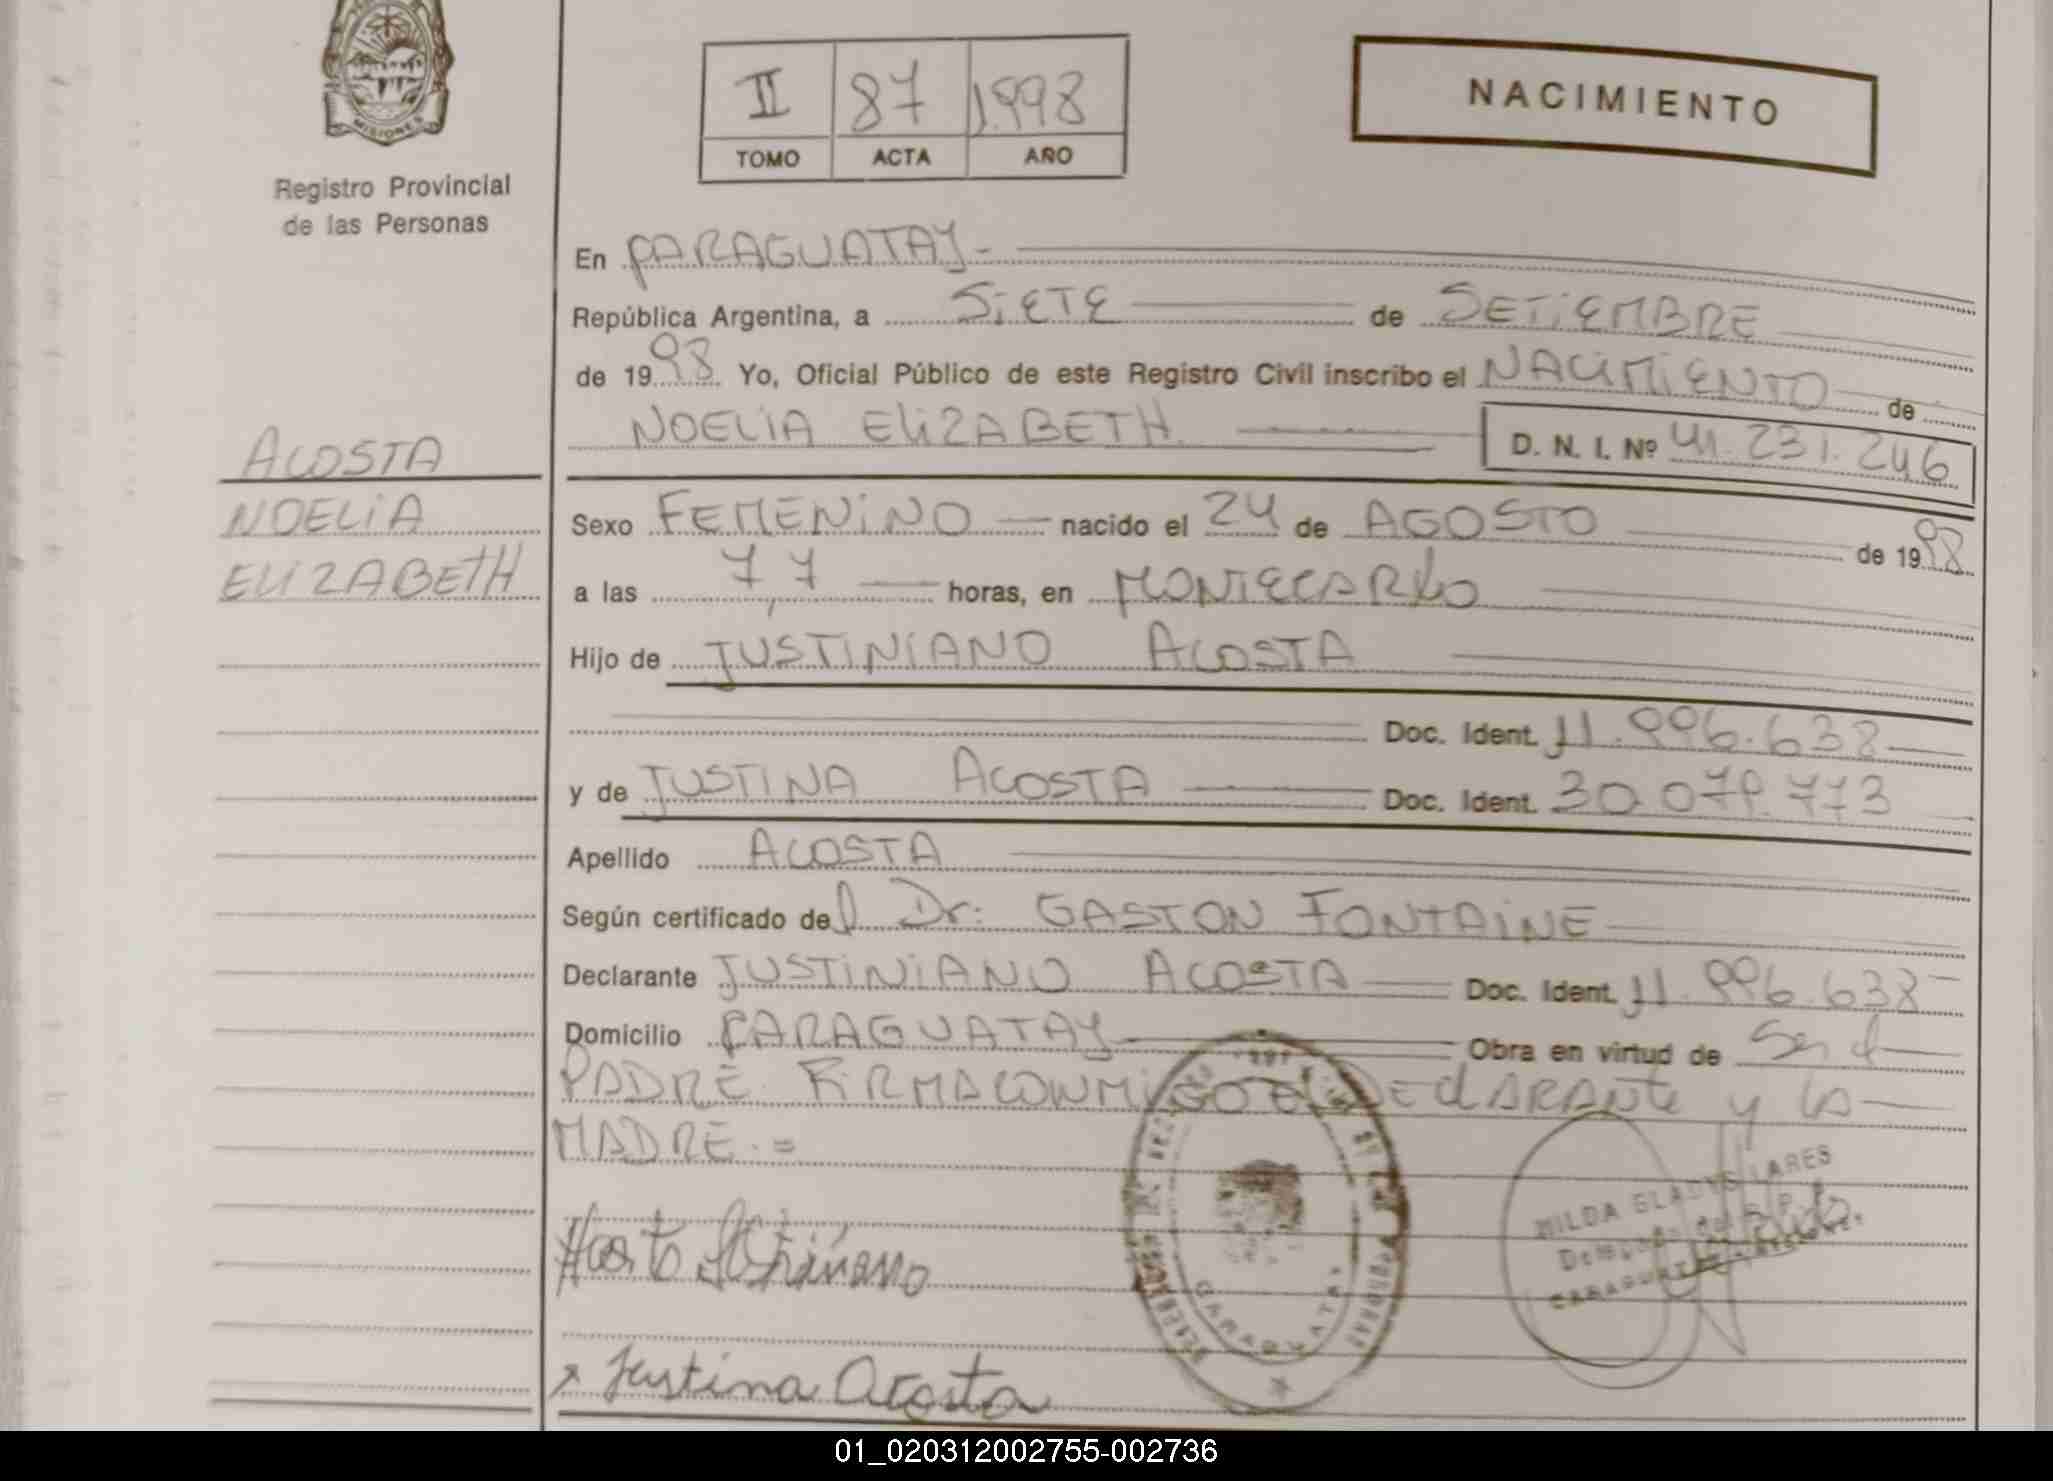 MISIONES
Registro Provincial
de las Personas
II 87 1.998
TOMO ACTA AÑO
NACIMIENTO
En CARAGUATAY-
República Argentina, a SiETE de SETiEMBRE
de 1998 Yo, Oficial Público de este Registro Civil inscribo el NACiMiENTO de
NOELiA ELiZABETH. D. N. I. Nº 41.231.246
ACOSTA
NOELiA
ELiZABETH
Sexo FEMENiNO nacido el 24 de AGOSTO de 1998
a las 7,7 horas, en MONTECARLO
Hijo de JUSTINIANO ACOSTA
Doc. Ident. 11.996.638
y de JUSTINA ACOSTA Doc. Ident. 30.079.773
Apellido ACOSTA
Según certificado del Dr: GASTON FONTAiNE
Declarante JUSTiNiANO ACOSTA Doc. Ident. 11.996.638
Domicilio CARAGUATAY Obra en virtud de Ser el
PADRE FiRMA CONMiGO El DEClARANTE y la
MADRE.=
Justina Acosta
CARAGUATAY
HILDA GLADYS LARES
01_020312002755-002736